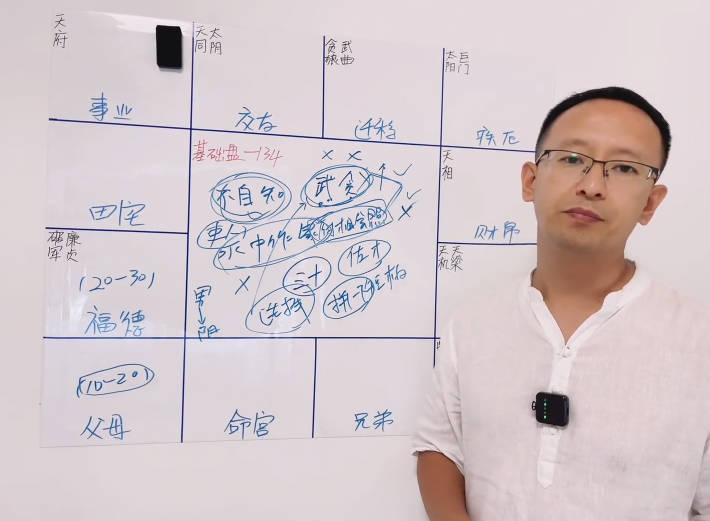 天府
事业
天同 太阴
交友
贪狼 武曲
迁移
太阳 巨门
疾厄
田宅
基础盘-134
不自知
武贪
男
阴
选择
三十
佐才
天相
财帛
破军 廉贞
(20-30)
福德
天机 天梁
(10-20)
父母
命宫
兄弟